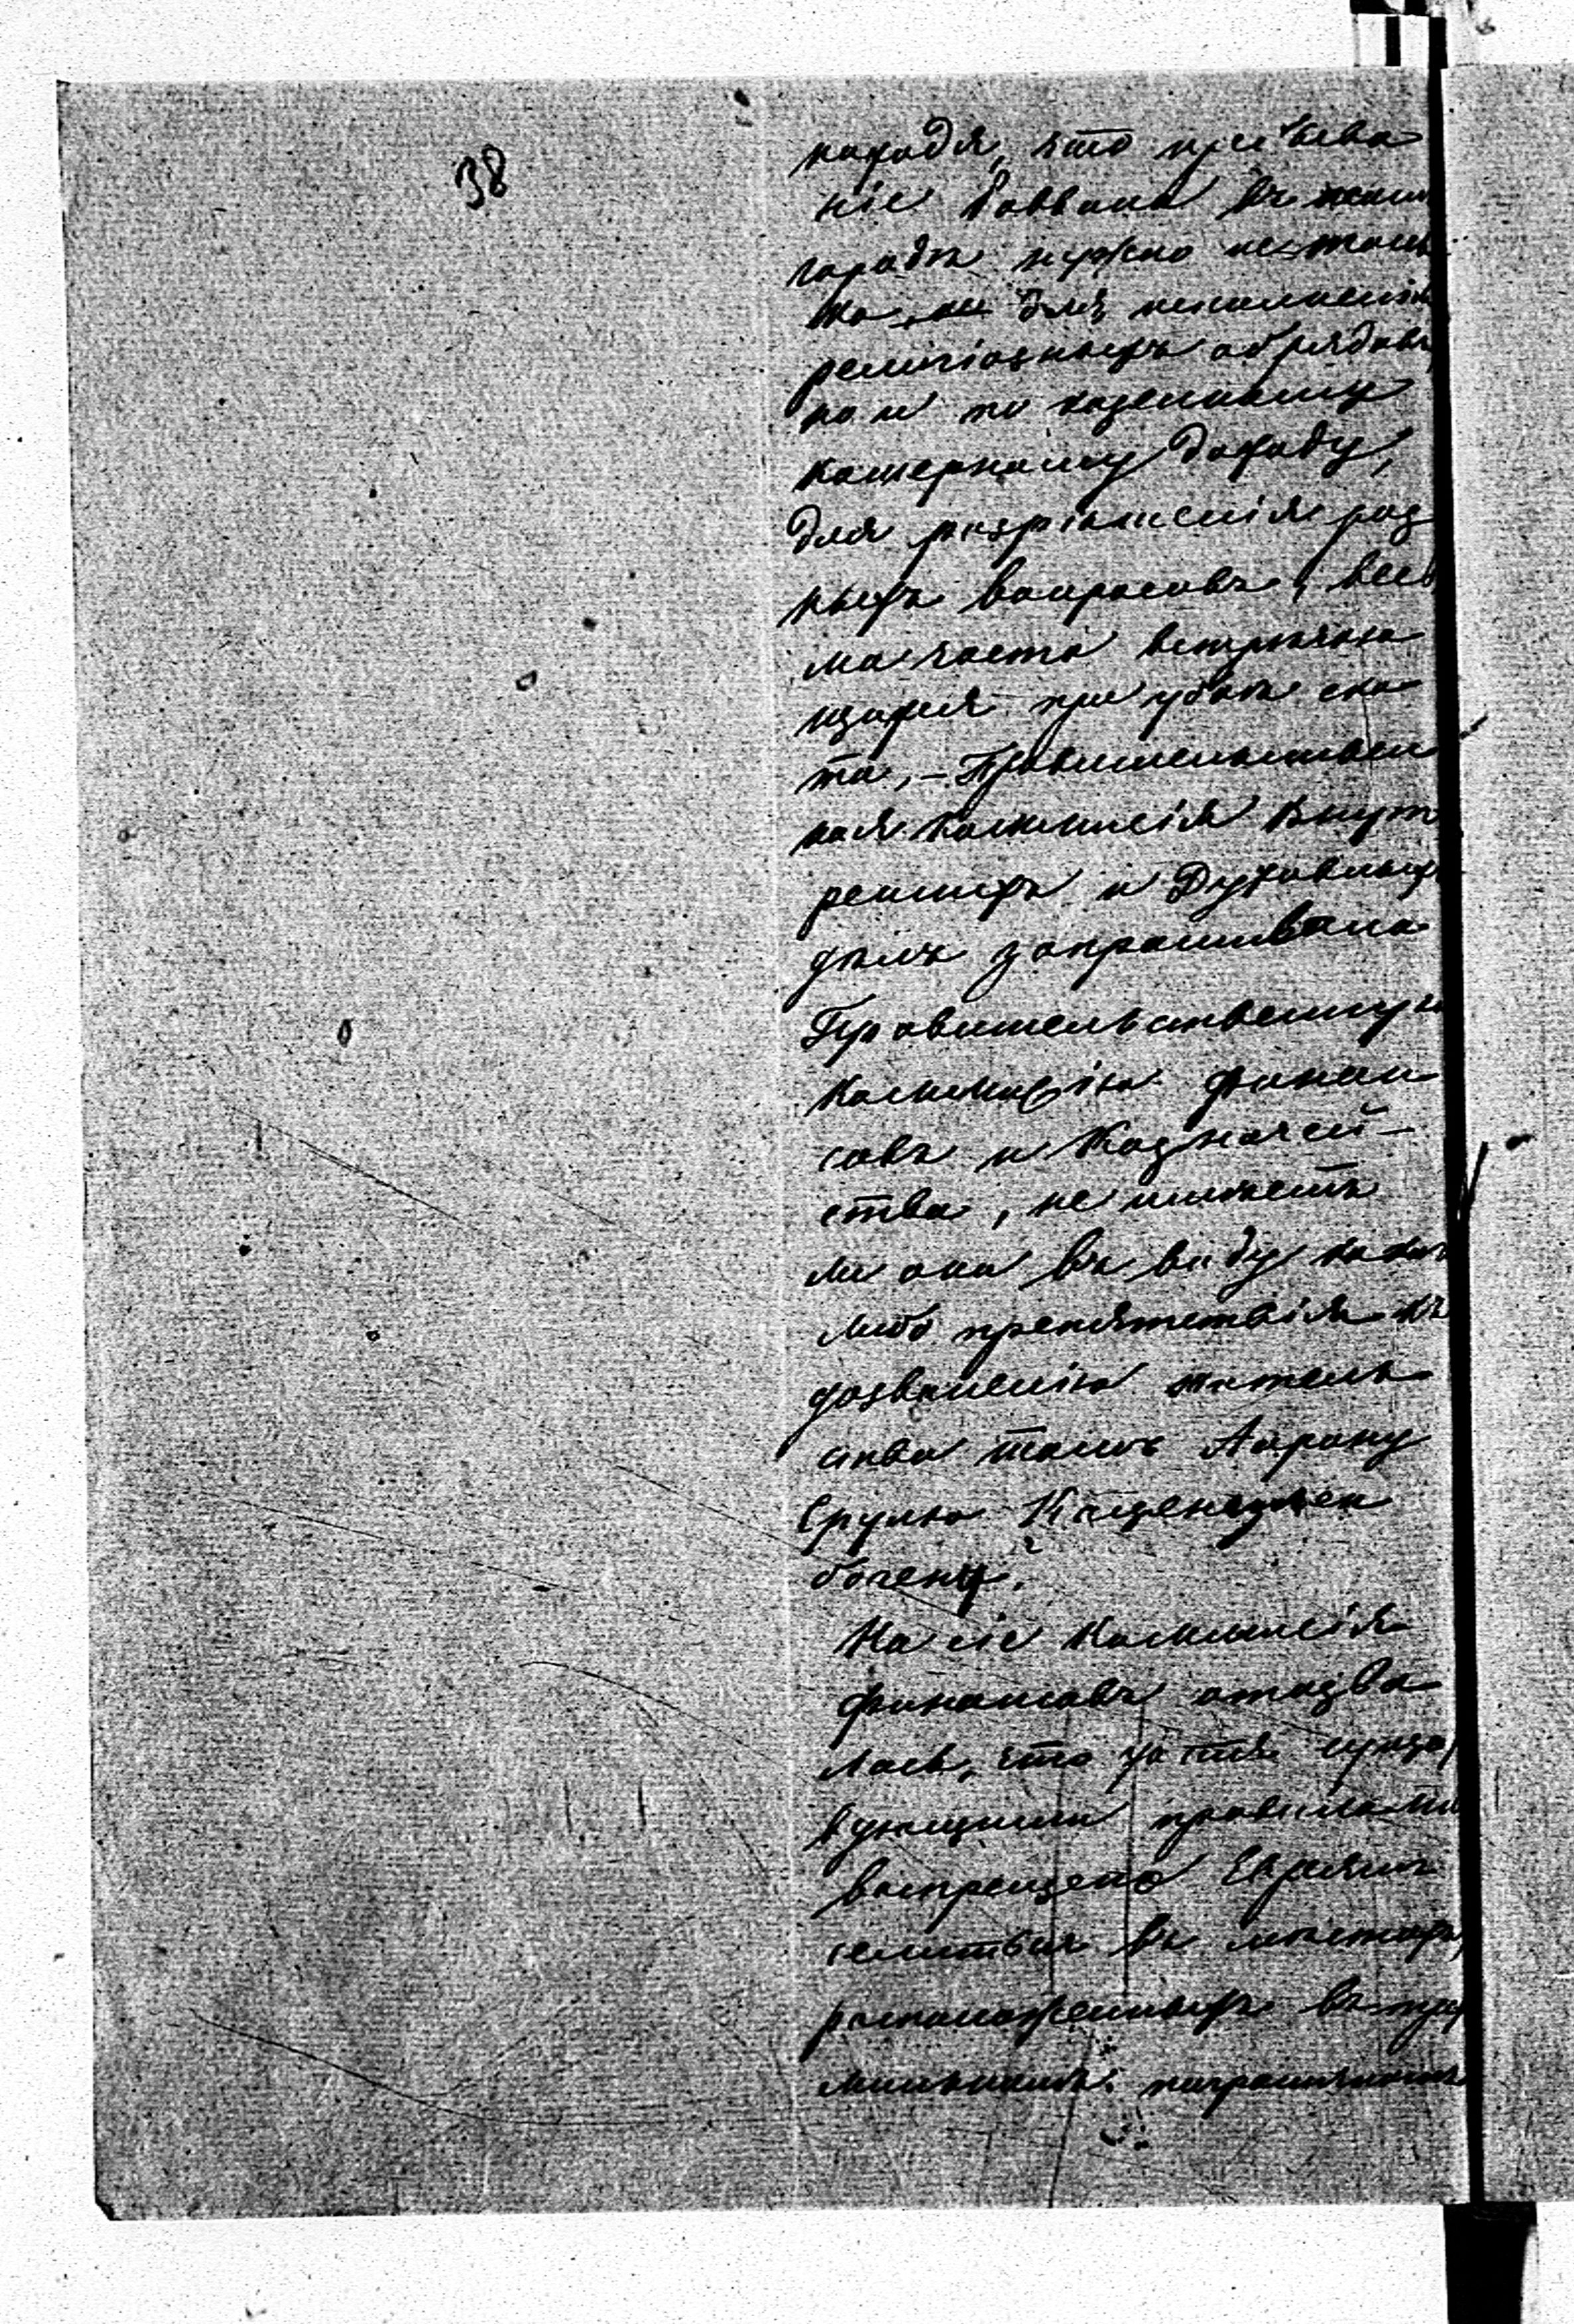 38
находя, что пребыва
ніе Раввина въ
городѣ нужно не толь
ко для исполненія
религіозныхъ обрядовъ,
но и по казенному
кошерному доходу,
для разрѣшенія раз
ныхъ вопросовъ, весь
ма часто встрѣчаю
щихся при убоѣ ско
та, – Правительствен
ная Коммисія Внут
реннихъ и Духовныхъ
дѣлъ запрашивала
Правительственную
Коммисію Финан
совъ и Казначей-
ства, не имѣетъ
ли она въ виду какого
либо препятствія къ
дозволенію житель
ства тамъ Аарону
Ерулю
богену?
На сіе Коммисія
Финансовъ отозва
лась, что
ствующими правилами
воспрещено Евреямъ
селиться въ мѣстахъ,
расположенныхъ въ трех
мильномъ пограничномъ